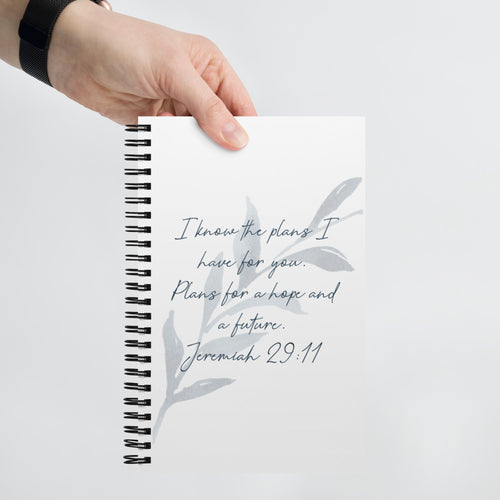 I know the plans I
have for you.
Plans for a hope and
a future.
Jeremiah 29:11